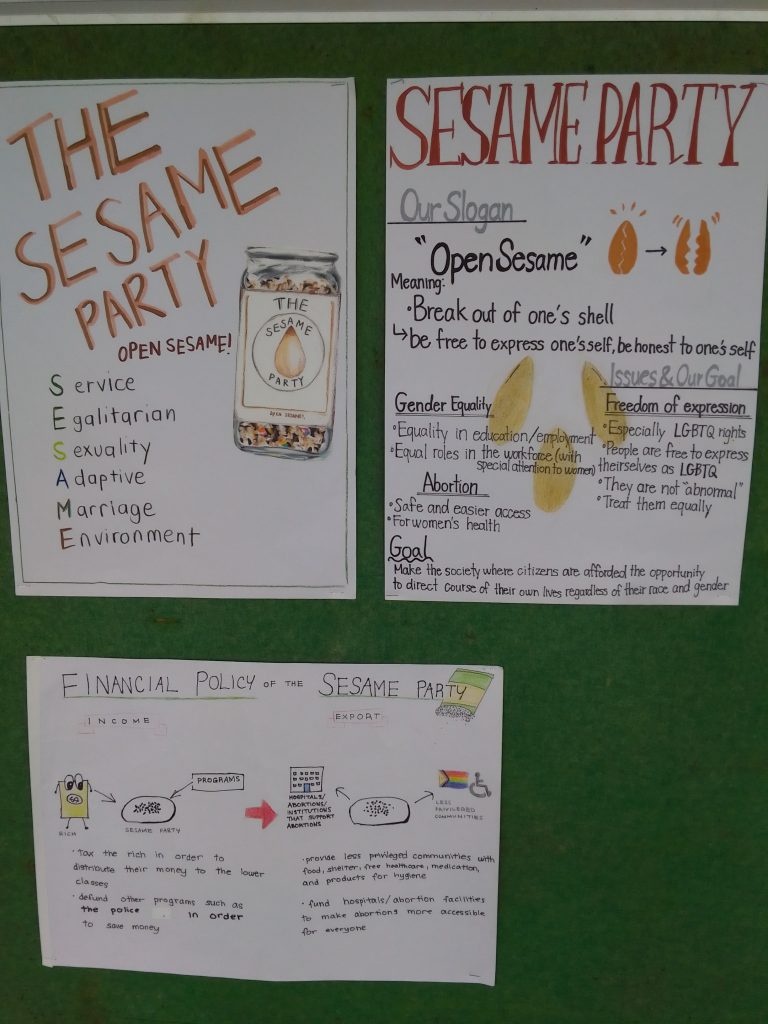 THE
SESAME
PARTY
OPEN SESAME!
THE
SESAME
PARTY
OPEN SESAME!
Service
Egalitarian
Sexuality
Adaptive
Marriage
Environment
SESAME PARTY
Our Slogan
"Open Sesame"
Meaning:
・Break out of one's shell
↳be free to express one's self, be honest to one's self
Issues & Our Goal
Gender Equality
・Equality in education/employment
・Equal roles in the workforce (with
special attention to women)
Abortion
・Safe and easier access
・For women's health
Freedom of expression
・Especially LGBTQ rights
・People are free to express
theirselves as LGBTQ
・They are not "abnormal"
・Treat them equally
Goal
Make the society where citizens are afforded the opportunity
to direct course of their own lives regardless of their race and gender
FINANCIAL POLICY OF THE SESAME PARTY
INCOME
RICH
SESAME PARTY
PROGRAMS
・Tax the rich in order to
distribute their money to the lower
classes
・defund other programs such as
the police in order
to save money
EXPORT
HOSPITALS/
ABORTIONS/
INSTITUTIONS
THAT SUPPORT
ABORTIONS
LESS
PRIVILEGED
COMMUNITIES
・provide less privileged communities with
food, shelter, free healthcare, medication,
and products for hygiene
・fund hospitals/abortion facilities
to make abortions more accessible
for everyone